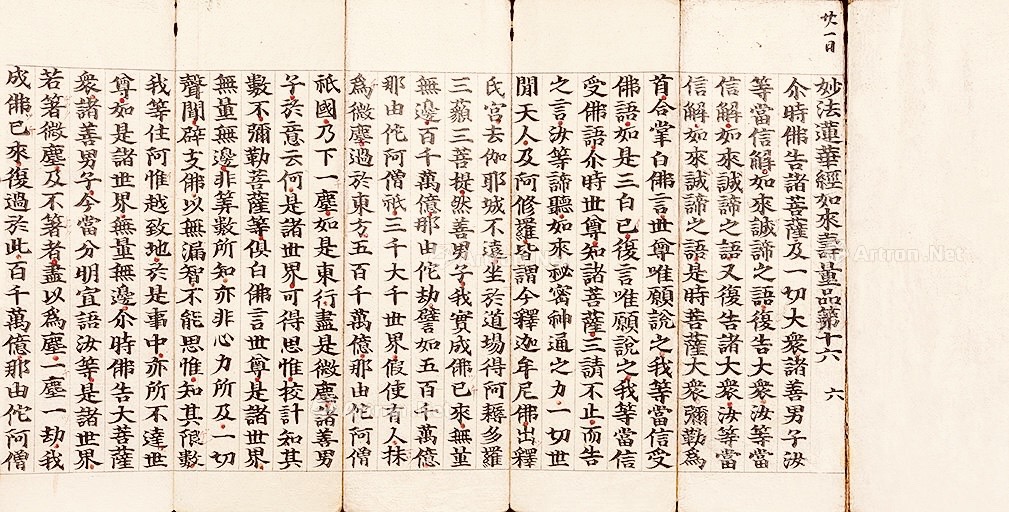 廿一日
妙法蓮華經如來壽量品第十六 六
尒時佛告諸菩薩及一切大衆諸善男子汝
等當信解如來誠諦之語復告大衆汝等當
信解如來誠諦之語又復告諸大衆汝等當
信解如來誠諦之語是時菩薩大衆彌勒爲
首合掌白佛言世尊唯願說之我等當信受
佛語如是三白已復言唯願說之我等當信
受佛語尒時世尊知諸菩薩三請不止而告
之言汝等諦聽如來秘密神通之力一切世
閒天人及阿修羅皆謂今釋迦牟尼佛出釋
氏宮去伽耶城不遠坐於道場得阿耨多羅
三藐三菩提然善男子我實成佛已來無量
無邊百千萬億那由佗劫譬如五百千萬億
那由佗阿僧祇三千大千世界假使有人抹
爲微塵過於東方五百千萬億那由佗阿僧
祇國乃下一塵如是東行盡是微塵諸善男
子於意云何是諸世界可得思惟校計知其
數不彌勒菩薩等俱白佛言世尊是諸世界
無量無邊非筭數所知亦非心力所及一切
聲聞辟支佛以無漏智不能思惟知其限數
我等住阿惟越致地於是事中亦所不達世
尊如是諸世界無量無邊尒時佛告大菩薩
衆諸善男子今當分明宣語汝等是諸世界
若著微塵及不著者盡以爲塵一塵一劫我
成佛已來復過於此百千萬億那由佗阿僧
Artron.Net